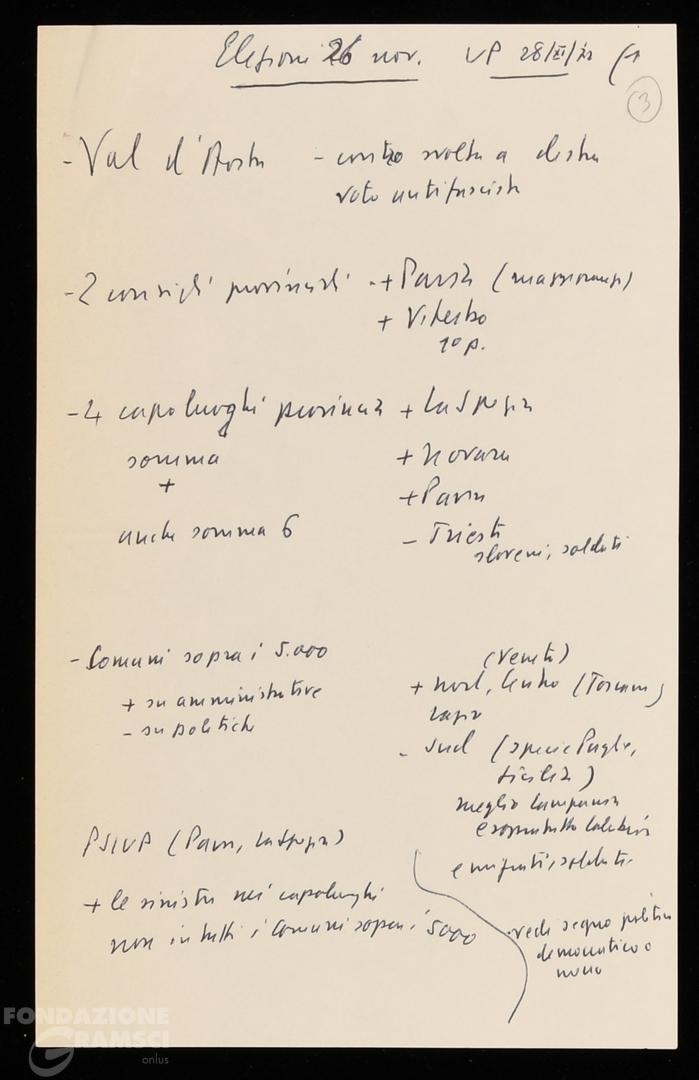 Elezioni 26 nov. UP 28/XI/72 (1
3
- Val d'Aosta - contro svolta a destra
voto antifascista
- 2 consigli provinciali - + Pavia (maggioranza)
+ Viterbo
1º p.
- 4 capoluoghi provincia + La Spezia
somma + Novara
+ + Pavia
anche somma 6 - Trieste
sloveni, soldati
- Comuni sopra i 5.000 (Veneto)
+ su amministrative + nord, Centro (Toscana)
- su politiche Lazio
- Sud (specie Puglie,
Sicilia)
meglio Campania
e soprattutto Calabria
PSIUP (Pavia, La Spezia)
emigrati, soldati
+ le sinistre nei capoluoghi
non in tutti i Comuni sopra i 5000
vedi segno politico
democratico o
meno
FONDAZIONE
GRAMSCI
onlus